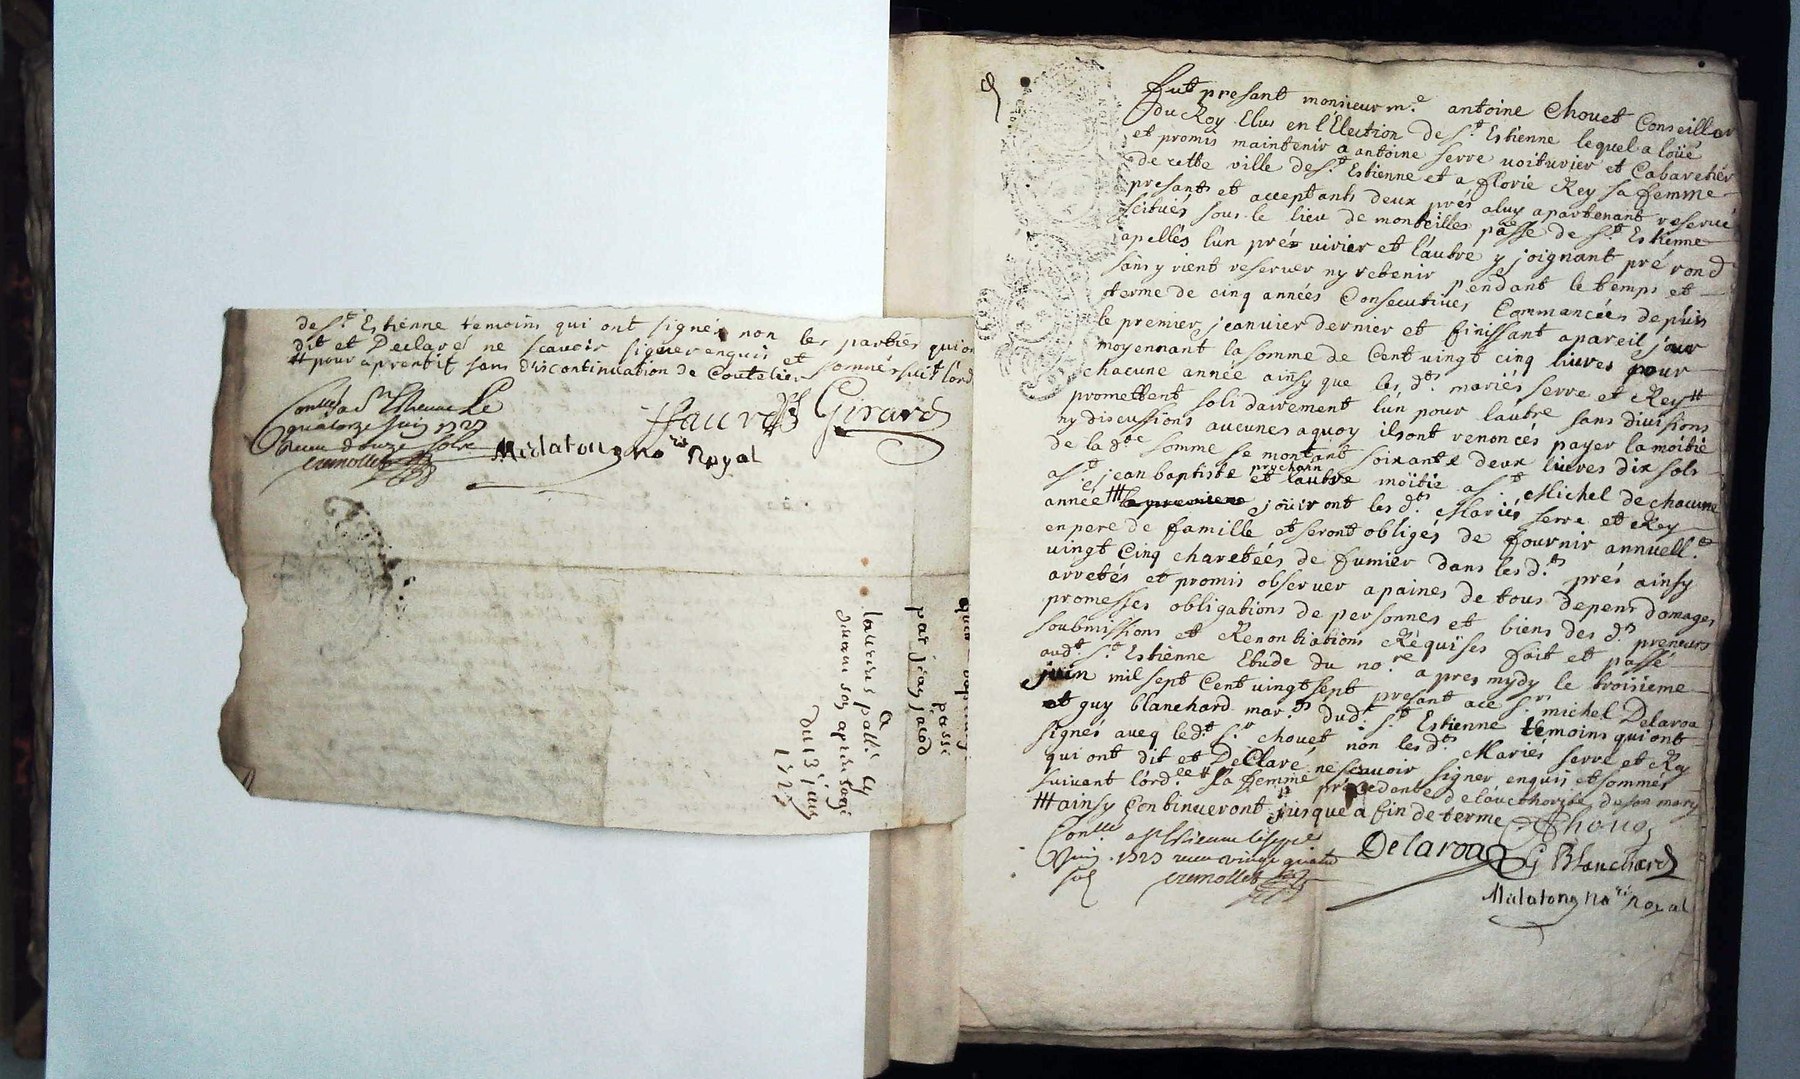 de St Estienne temoins qui ont signés non les parties qui on
dit et Declaré ne scavoir signer enquis et sommés suivt lord
# pour aprentit sans discontinuation de Coutelier
Conlle a St Estienne Le
quatorze juin 1727
Receu douze sols
cremollet
Faure Girard
Mialatong nore Royal
par jean jacod
passé
a
du 13 juin
1727
fut presant monsieur me antoine Chouet Conseiller
du Roy Elus en l'Election de St Estienne lequel a loüé
et promis maintenir a antoine serre voiturier et Cabaretier
de cette ville de St Estienne et a florie Rey sa femme
presants et acceptants deux prés aluy apartenant reservé
scitués sous le lieu de monteilles pâsse de St Estienne
apellés l'un pré vivier et l'autre y joignant pré rond
sans y rient reserver ny retenir pendant le temps et
terme de cinq années Consecutives Commancées depuis
le premier jeanvier dernier et finissant apareil jour
moyennant la somme de Cent vingt cinq livres pour
chacune année ainsy que les dts mariés serre et Rey #
promettent solidairement l'un pour l'autre sans divisions
ny discussions aucunes aquoy ilsont renoncés payer la moitié
de la dte somme se montant soixante deux livres dix sols
a St jean baptiste prochain et lautre moitié a St Michel de chacune
année # la premiere joüiront les dts Mariés serre et Rey
en pere de famille et seront obligés de fournir annuellt
vingt Cinq charetées de fumier dans les dts prés ainsy
arretés et promis observer a paines de tous depens domages
promesses obligations de personnes et biens des dts preneurs
soubmissions et Renontiations Réquises fait et passé
audt St Estienne Etude du nore apres mydy le troisieme
juin mil sept Cent vingt sept presant ace Srs michel Delaroa
et guy blanchard mards dudt St Estienne temoins qui ont
signés aveq ledt Sr chouet non les dts Mariés serre et Rey
qui ont dit et DeClare ne scavoir signer enquis et sommés
suivant l'ordce # sa femme procedante de l'authorité de son mary
# ainsy Continueront jusque a fin de terme Chouet
Conlle a St Estienne le sept
juin 1727 receu vingt quatre
sols cremollet
Delaroa G Blanchard
Mialatong nore Royal